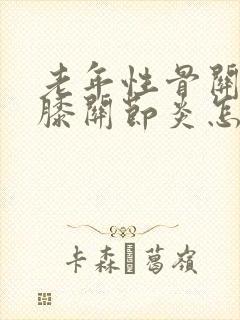 老年性骨關
膝關節炎怎
卡森 葛嶺